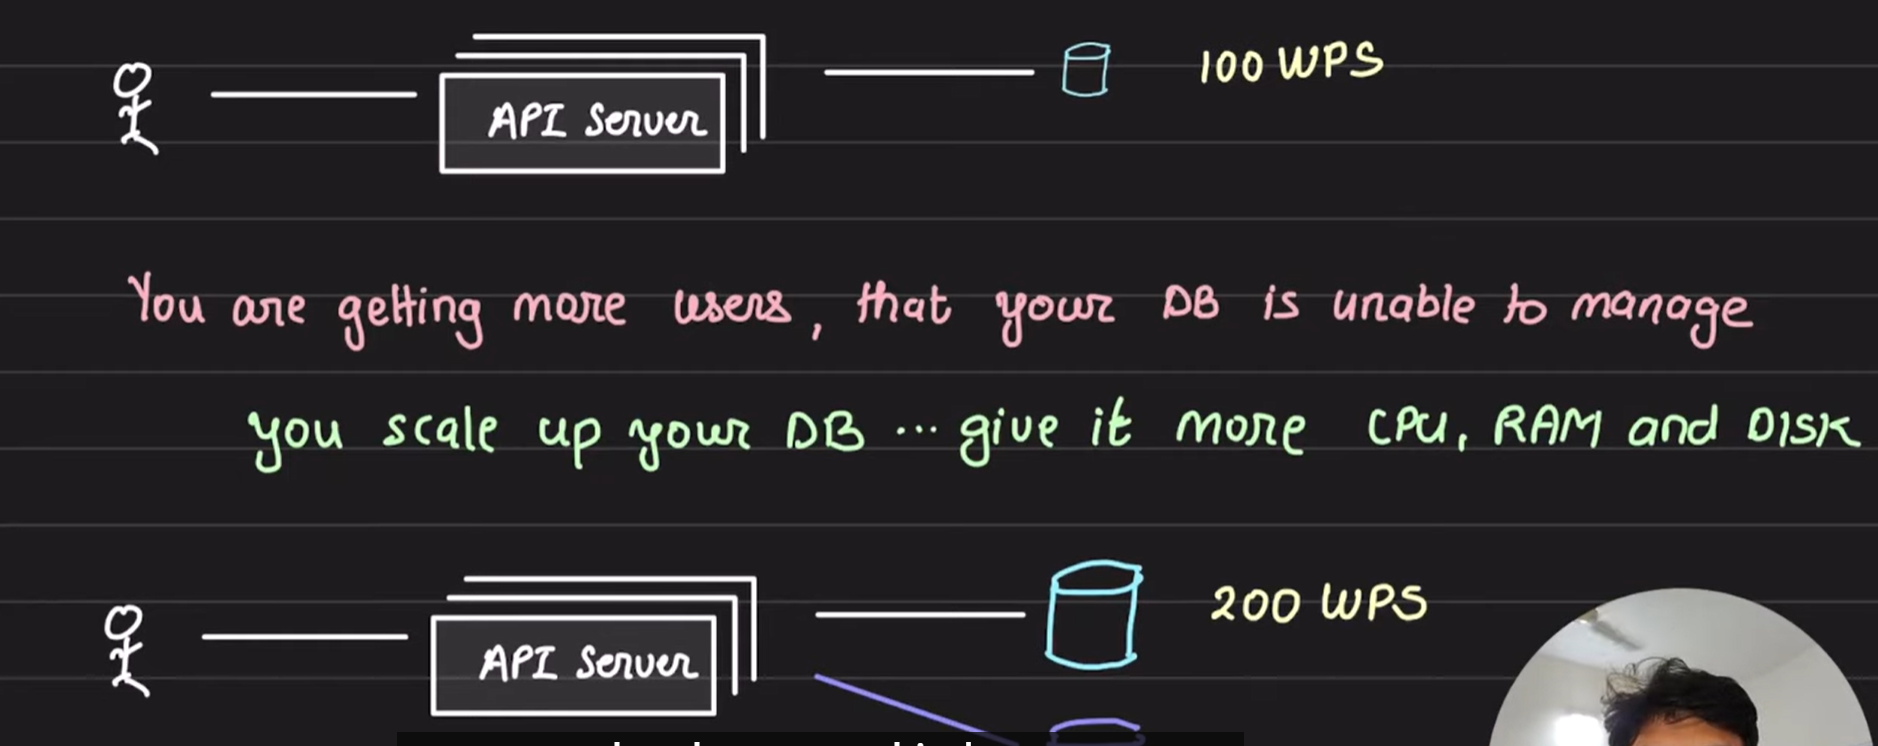 API Server
100 WPS
You are getting more users, that your DB is unable to manage
you scale up your DB ... give it more CPU, RAM and DISK
API Server
200 WPS